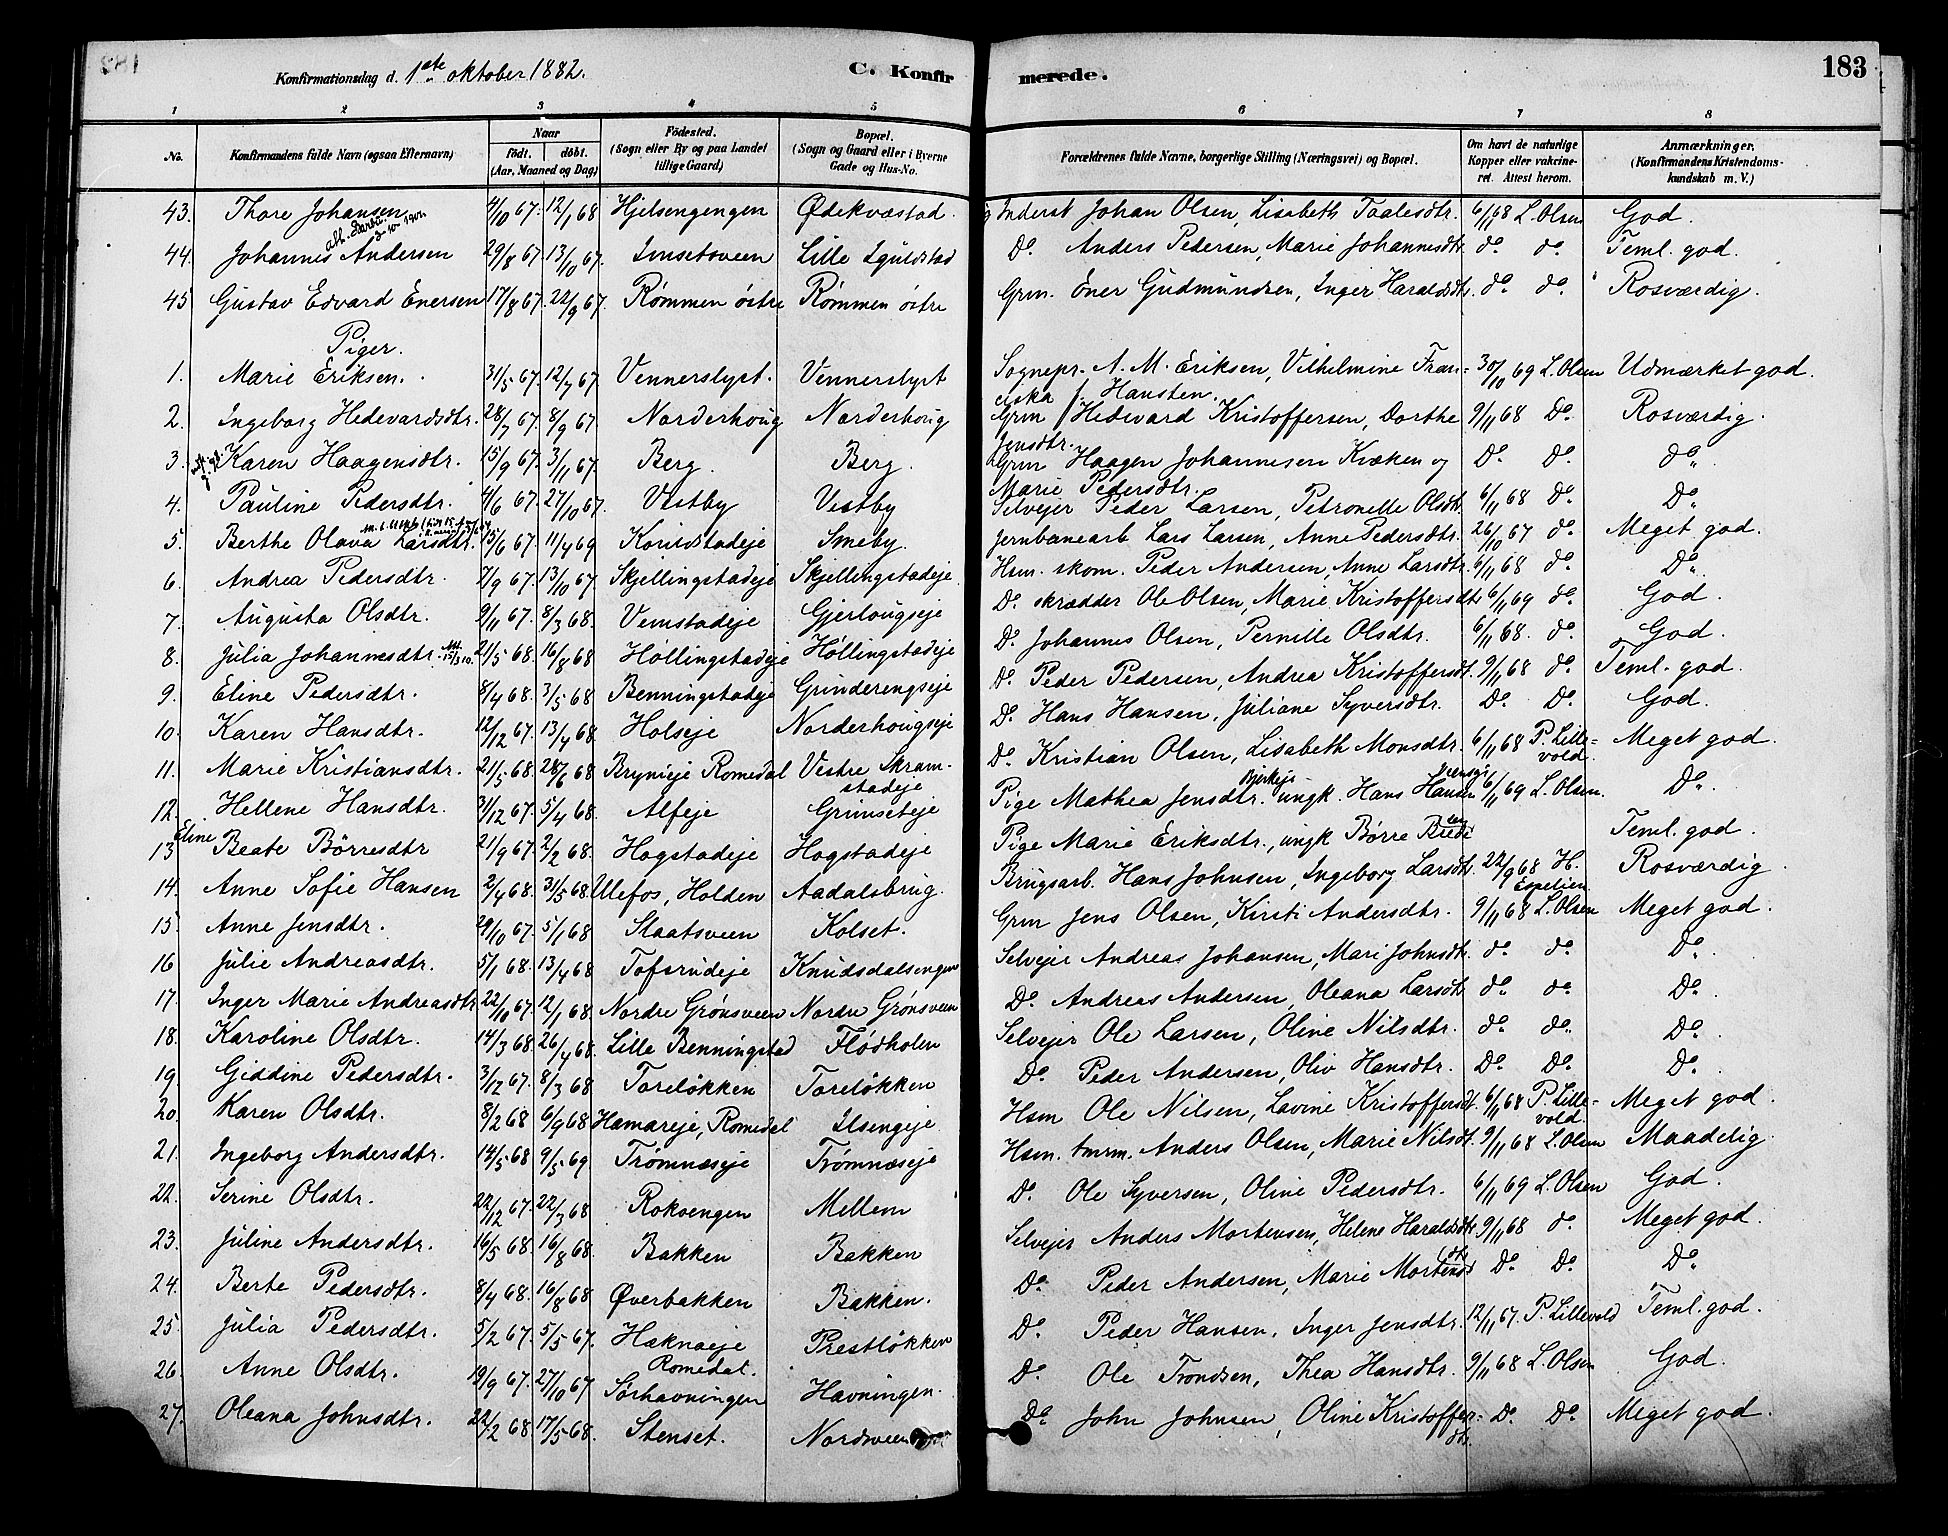 Konfirmationsdag d. 1ste oktober 1882. C. Konfir merede. 183
1 2 3 4 5 6 7 8
No. Konfirmandens fulde Navn (ogsaa Efternavn) Naar født. døbt. (Aar, Maaned og Dag) Fødested. (Sogn eller By og paa Landet tillige Gaard) Bopæl. (Sogn og Gaard eller i Byerne Gade og Hus-No. Forældrenes fulde Navne, borgerlige Stilling (Næringsvei) og Bopæl. Om havt de naturlige Kopper eller vakcineret. Attest herom. Anmærkninger. (Konfirmandens Kristendomskundskab m. V.)
43. Thore Johansen 4/10 67. 12/1 68 Hjelsengengen Ødekvæstad. Inderst Johan Olsen, Lisabeth Taalesdtr. 6/11 68 L. Olsen God.
44. Johannes Andersen 29/8 67. 13/10 67. Imsetsveen Lille Iguldstad Do. Anders Pedersen, Marie Johannesdtr. do. do. Teml. god.
45 Gustav Edvard Enersen 17/8 67. 22/9 67. Rømmen østre Rømmen østre Grm. Ener Gudmundsen, Inger Haraldsdtr. do. do. Rosværdig.
Piger.
1. Marie Eriksen. 31/5 67. 12/7 67. Vennerslyst. Vennerslyst Sognepr. A. M. Eriksen, Vilhelmine Franciska f. Hansten. 30/10 69 L. Olsen Udmærket god.
2. Ingeborg Hedevardsdtr. 28/7 67. 8/9 67 Norderhoug Norderhoug Grm Hedevard Kristoffersen, Dorthe Jensdtr. 9/11 68 Do. Rosværdig.
3. Karen Haagensdtr. 15/9 67. 3/11 67. Berg. Berg. Grm Haagen Johannesen Kvæken og Marie Pedersdtr. Do. Do. do.
4. Pauline Pedersdtr. 4/6 67. 27/10 67. Vestby Vestby Selvejer Peder Larsen, Petronelle Olsdtr. 6/11 68 Do. Do.
5. Berthe Olava Larsdtr. 15/6 67. 11/4 69 Korilstadeje Smeby. Jernbanearb. Lars Larsen, Anne Pedersdtr. 26/10 67 do. Meget god.
6. Andrea Pedersdtr. 7/9 67. 13/10 67. Skjellingstadeje Skjellingstadeje Hsm. skom. Peder Andersen, Anne Larsdtr. 6/11 68 do. Do.
7. Augusta Olsdtr. 9/11 67. 8/3 68. Vemstadeje Gjerlougseje Do. skrædder Ole Olsen, Marie Kristoffersdtr. 6/11 69 do. God.
8. Julia Johannesdtr. 21/5 68. 16/8 68 Høllingstadeje Høllingstadeje Do. Johannes Olsen, Pernille Olsdtr. 6/11 68. do. God.
9. Eline Pedersdtr. 8/4 68. 3/5 68 Benningstadeje Grinderengseje Do. Peder Pedersen, Andrea Kristoffersdt. 9/11 68 do. Teml. god.
10. Karen Hansdtr. 12/12 67. 13/4 68. Holseje Norderhougseje Do. Hans Hansen, Juliane Syversdtr. Do. Do. God.
11. Marie Kristiansdtr. 21/5 68. 28/6 68 Brynieje Romedal Vestre Skramstadeje Do. Kristian Olsen, Lisabeth Monsdtr. 6/11 68 P. Lillevold. Meget god.
12. Hellene Hansdtr. 31/12 67. 5/4 68. Alfeje Grimseteje Pige Mathea Jensdtr. Bjerkeje ungk. Hans Hansen 6/11 69 L. Olsen. Do.
13 Eline Beate Børresdtr 21/9 67 2/2 68. Hogstadeje Hogstadeje Pige Marie Eriksdtr., ungk Børre Teml. god.
14. Anne Sofie Hansen 2/4 68. 31/5 68. Ulefos, Holden Aadalsbrug. Brugsarb. Hans Johnsen, Ingeborg Larsdtr. 22/9 68 H. Espelien Rosværdig
15. Anne Jensdtr. 29/10 67. 5/1 68 Staatsveen Kolset. Grm Jens Olsen, Kirsti Andersdtr. 9/11 68 L. Olsen Meget god.
16 Julie Andreasdtr. 5/1 68. 13/4 68 Tofsrudeje Knudsdalsengen Selvejer Andreas Johansen, Mari Johnsdtr. do. do. Do.
17. Inger Marie Andreasdtr 22/10 67. 12/1 68 Nordre Grønsveen Nordre Grønsveen Do. Andreas Andersen, Oleana Larsdtr. do. do. Do.
18. Karoline Olsdtr. 14/3 68. 26/4 68. Lille Benningstad Flødholen Selvejer Ole Larsen, Oline Nilsdtr. do. do. Do.
19. Giddine Pedersdtr. 3/12 67. 8/3 68 Toreløkken Toreløkken Do. Peder Andersen, Oliv Hansdtr. Do. Do. Do.
20. Karen Olsdtr. 8/2 68 6/9 68 Hamareje, Romedal Ilsengeje. Hsm Ole Nilsen, Lavine Kristoffersdt. 6/11 68 P. Lillevold. Meget god.
21. Ingeborg Andersdtr. 14/5 68 9/5 69 Trømnæseje Trømnæseje Hsm. tmrm. Anders Olsen, Marie Nilsdt. 9/11 68 L. Olsen Maadelig
22. Serine Olsdtr. 22/12 67. 22/3 68. Rokoengen Mellem Do. Ole Syversen, Oline Pedersdtr. 6/11 69 L. Olsen God.
23. Juline Andersdtr. 16/5 68. 16/8 68. Bakken Bakken Selvejer Anders Mortensen, Helene Haraldsdtr 9/11 68 do. Meget god.
24. Berte Pedersdtr. 8/4 68. 16/8 68 Øverbakken Bakken. Do. Peder Andersen, Marie Mortensdtr Do. Do. Do.
25. Julia Pedersdtr. 5/2 67. 5/5 67. Haknaeje Romedal. Prestløkken Do. Peder Hansen, Inger Jensdtr. 12/11 67. P. Lillevold Teml. god.
26. Anne Olsdtr. 19/9 67. 27/10 67 Sørhavningen Havningen. Do. Ole Trondsen, Thea Hansdtr. 9/11 68 L. Olsen God.
27. Oleana Johnsdtr. 22/2 68 17/5 68. Stenset. Nordsveen Do. John Johnsen, Oline Kristofferdtr. Do. Do. Meget god.